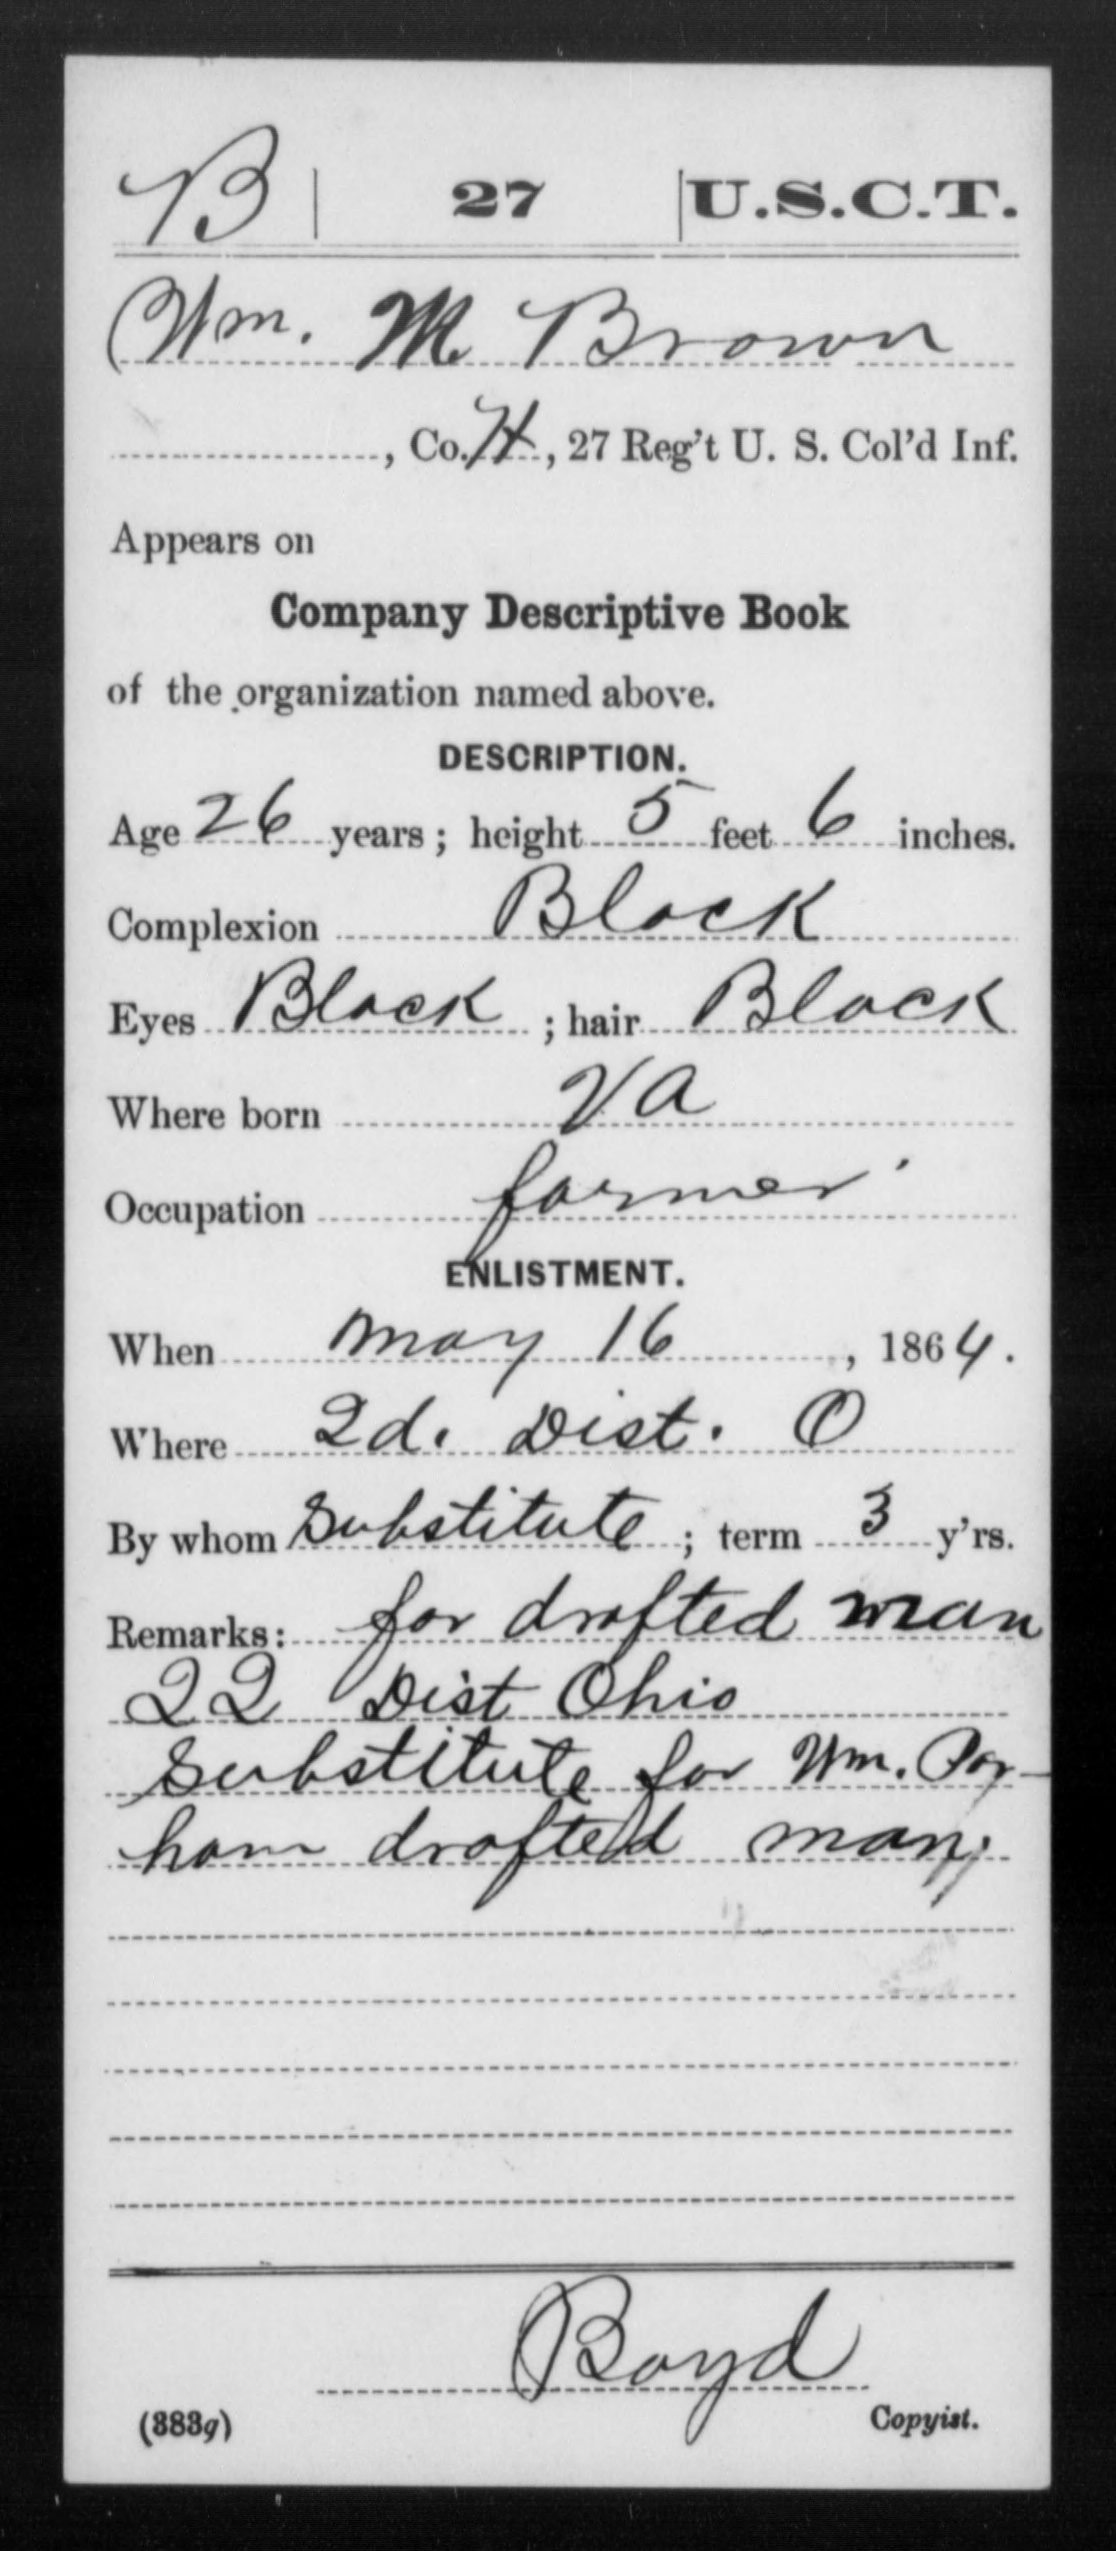 B | 27 | U.S.C.T.
Wm. M. Brown
, Co. H, 27 Reg't U. S. Col'd Inf.
Appears on
Company Descriptive Book
of the organization named above.
DESCRIPTION.
Age 26 years; height 5 feet 6 inches.
Complexion Black
Eyes Black; hair Black
Where born Va
Occupation farmer
ENLISTMENT.
When May 16, 1864.
Where 2d. Dist. O
By whom Substitute; term 3 y'rs.
Remarks: for drafted man
22 Dist Ohio
Substitute for Wm. Par-
ham drafted man.
Boyd
(383g) Copyist.